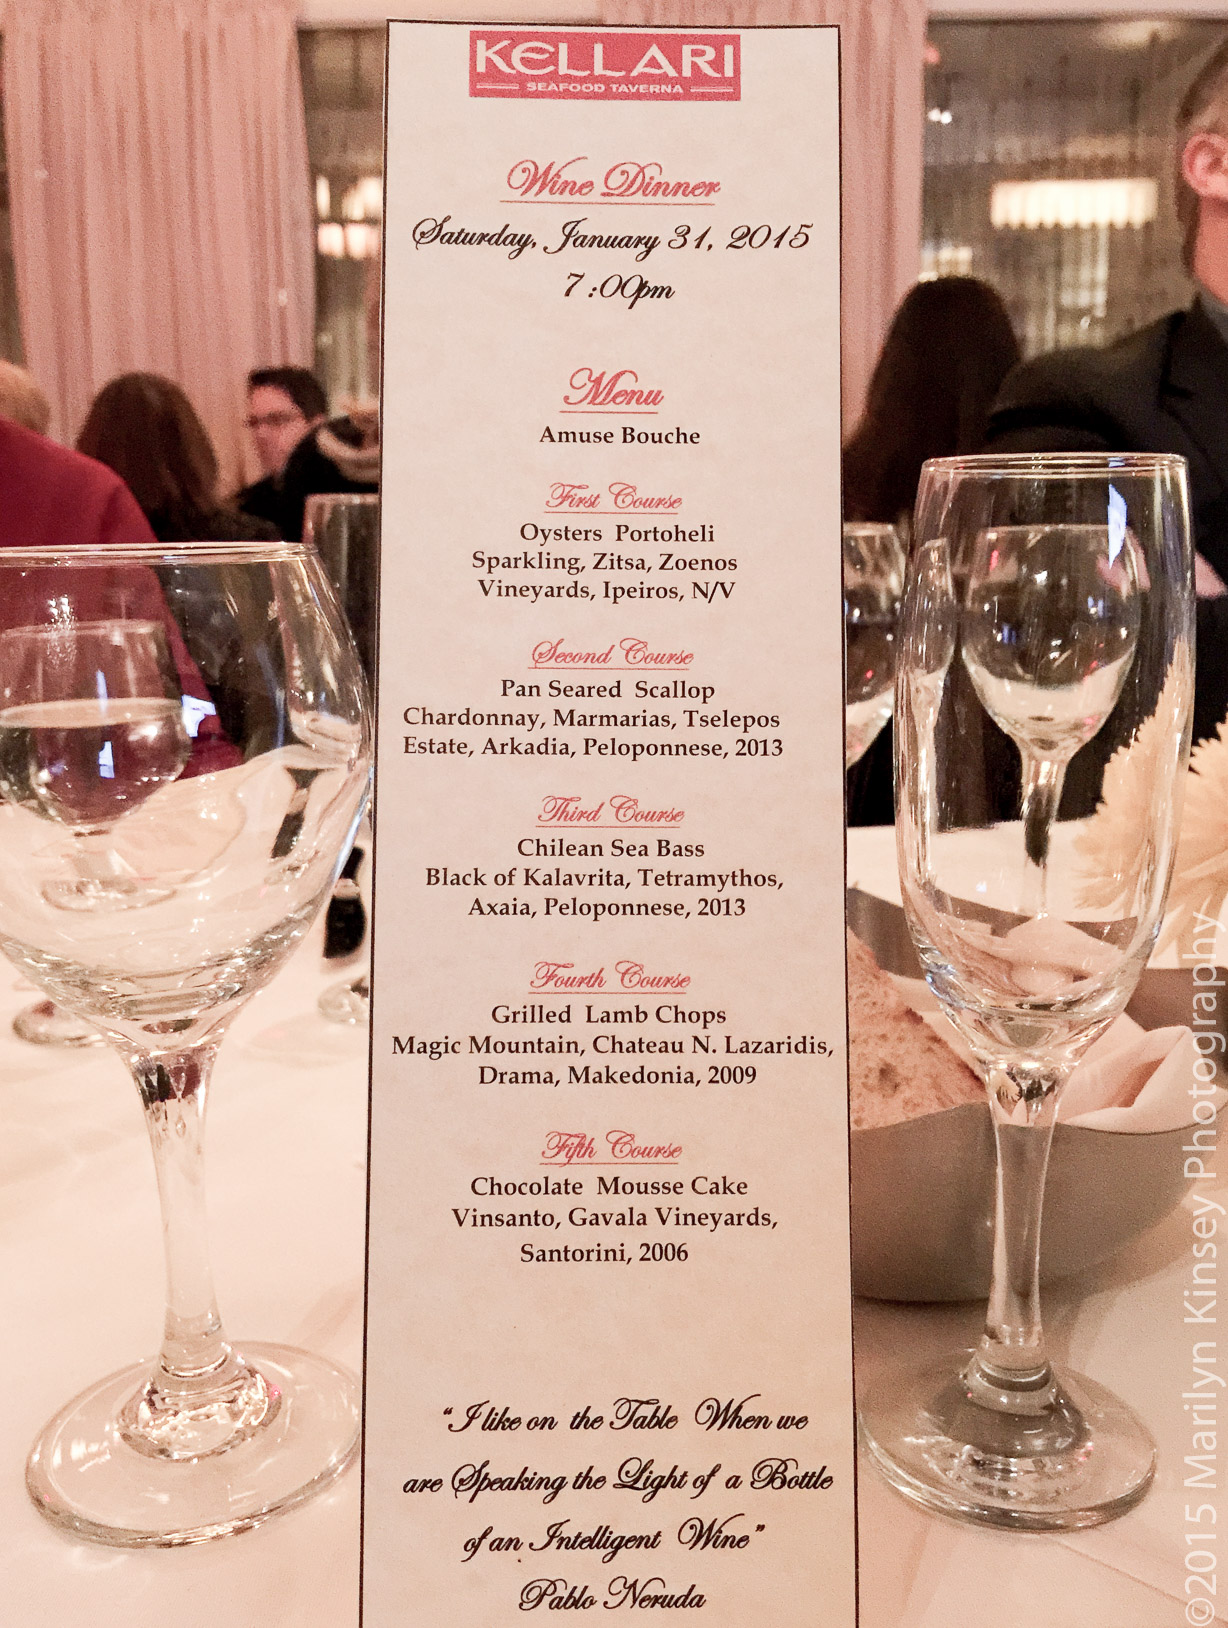 KELLARI
SEAFOOD TAVERNA
Wine Dinner
Saturday, January 31, 2015
7:00pm
Menu
Amuse Bouche
First Course
Oysters Portoheli
Sparkling, Zitsa, Zoenos
Vineyards, Ipeiros, N/V
Second Course
Pan Seared Scallop
Chardonnay, Marmarias, Tselepos
Estate, Arkadia, Peloponnese, 2013
Third Course
Chilean Sea Bass
Black of Kalavrita, Tetramythos,
Axaia, Peloponnese, 2013
Fourth Course
Grilled Lamb Chops
Magic Mountain, Chateau N. Lazaridis,
Drama, Makedonia, 2009
Fifth Course
Chocolate Mousse Cake
Vinsanto, Gavala Vineyards,
Santorini, 2006
“I like on the Table When we
are Speaking the Light of a Bottle
of an Intelligent Wine”
Pablo Neruda
©2015 Marilyn Kinsey Photography